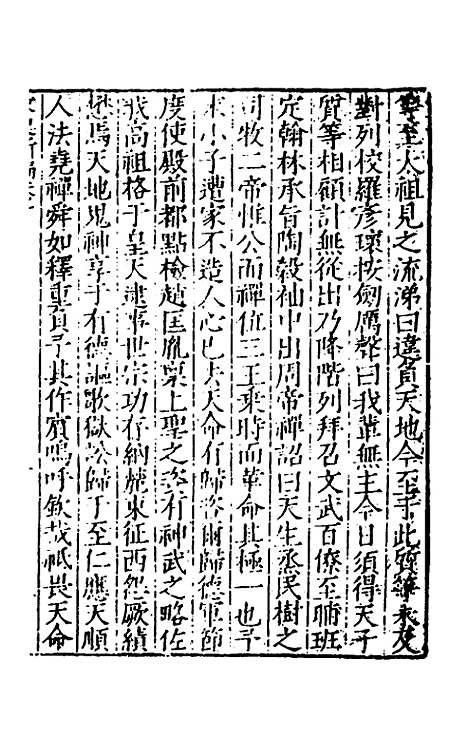 宰至太祖見之流涕曰違負天地今至于此質等未及
對列校羅彥瓌按劍厲聲曰我輩無主今日須得天子
質等相顧計無從出乃降階列拜召文武百僚至晡班
定翰林承旨陶穀袖中出周帝禪詔曰天生蒸民樹之
司牧二帝惟公而禪位三王乘時而革命其極一也予
末小子遭家不造人心已去天命有歸咨爾歸德軍節
度使殿前都點檢趙匡胤稟上聖之姿有神武之略佐
我高祖格于皇天逮事世宗功存納麓東征西怨厥績
懋焉天地鬼神享于有德謳歌獄訟歸于至仁應天順
人法堯禪舜如釋重負予其作賓嗚呼欽哉祗畏天命